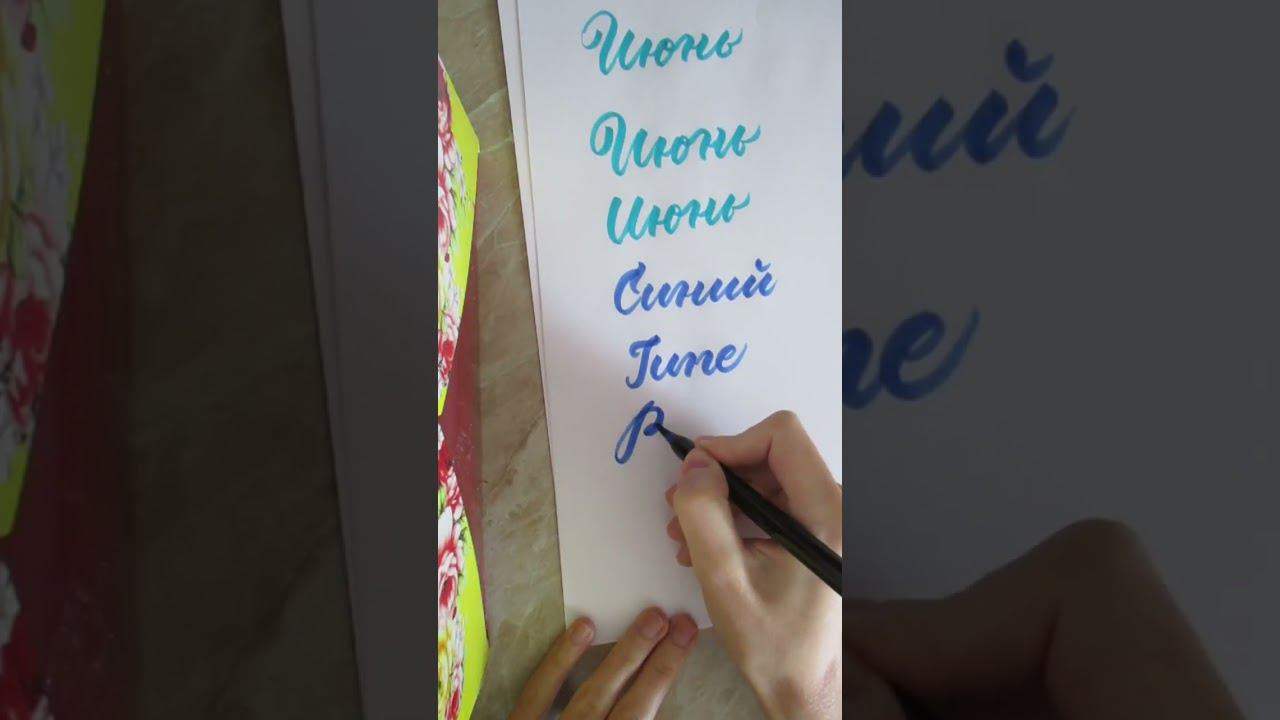 Июнь
Июнь
Июнь
Синий
June
P